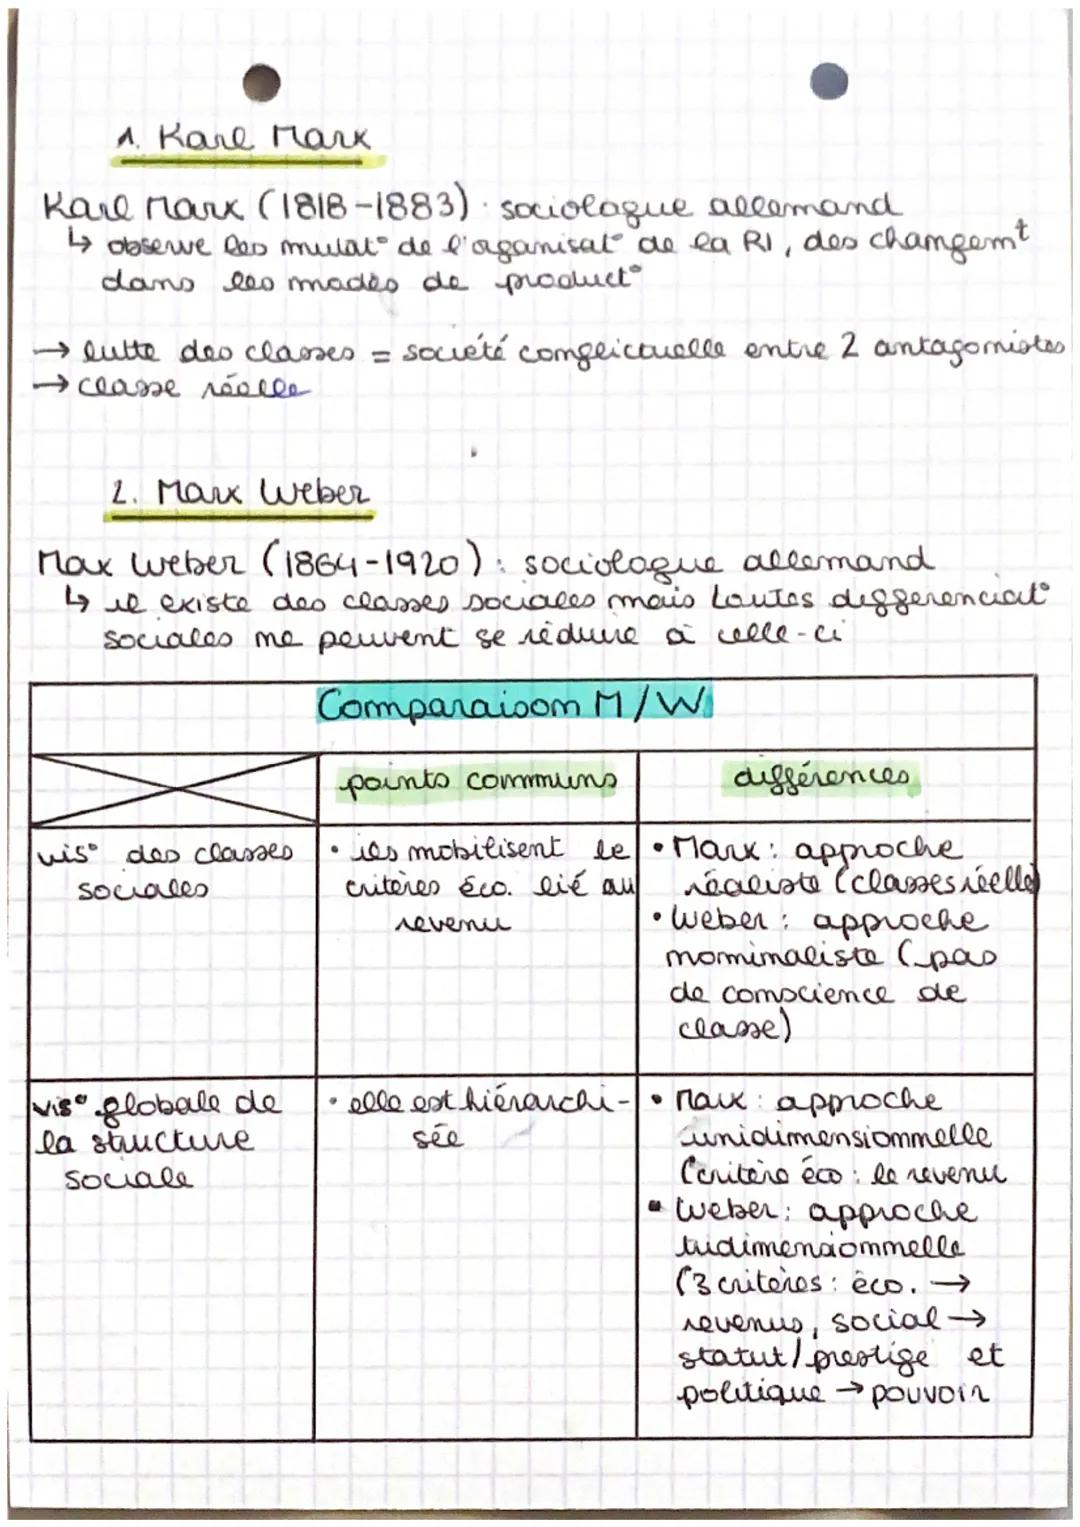 1. Karl Marx
Karl Marx (1818-1883) : sociologue allemand
↳ observe les mutat° de l'organisat° de la RI, des changemt
dans les modes de product°
→ lutte des classes = société conflictuelle entre 2 antagonistes
→ classe réelle
2. Marx Weber
Max Weber (1864-1920) : sociologue allemand
↳ il existe des classes sociales mais toutes differenciat°
sociales ne peuvent se réduire à celle-ci
Comparaison M/W
points communs
différences
vis° des classes
sociales
• ils mobilisent le
critères éco. lié au
revenu
• Marx : approche
réaliste (classes réelle)
• Weber : approche
nominaliste (pas
de conscience de
classe)
vis° globale de
la structure
sociale
• elle est hiérarchi-
sée
• Marx : approche
unidimensionnelle
(critère éco : le revenu
• Weber : approche
tridimensionnelle
(3 critères : éco. →
revenus, social →
statut/prestige et
politique → pouvoir